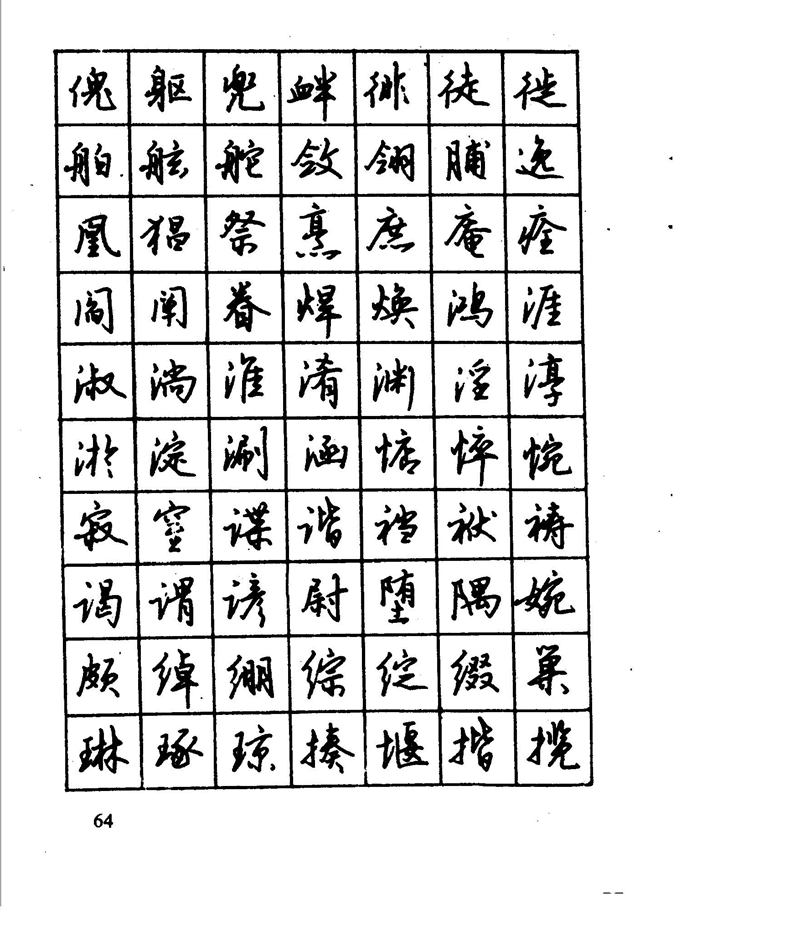 傀躯兜衅徘徙徒
舶舷舵敛翎脯逸
凰猖祭烹庶庵痊
阎阐眷焊焕鸿涯
淑淌淮淆渊淫淳
淤淀涮涵惦悴惋
寂窒谍谐裆袱祷
谒谓谚尉堕隅婉
颇绰绷综绽缀巢
琳琢琼揍堰揩揽
64